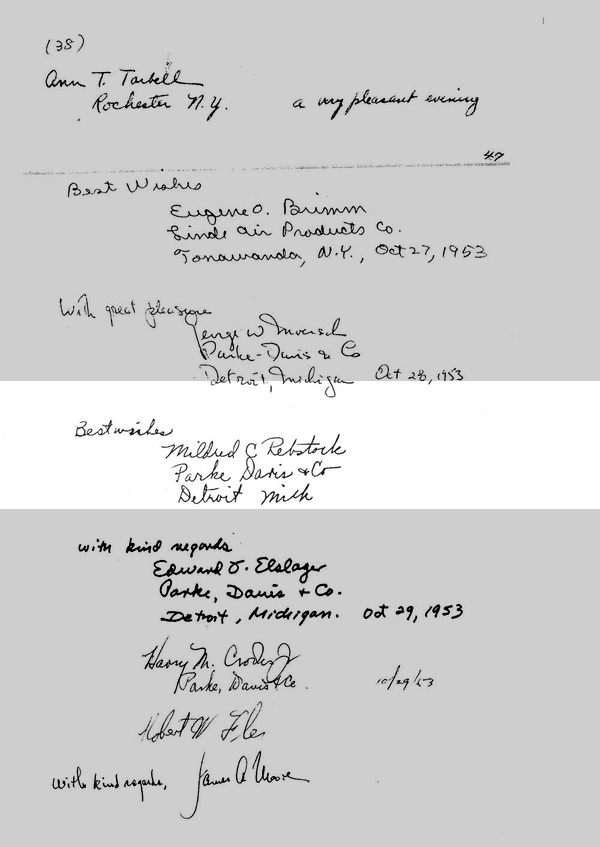 (38)
Ann T. Tarbell
Rochester N.Y. a very pleasant evening
47
Best Wishes
Eugene O. Brimm
Linde Air Products Co.
Tonawanda, N.Y., Oct 27, 1953
With great pleasure
George W Moersch
Parke-Davis & Co
Detroit, Michigan Oct 28, 1953
Best wishes
Mildred C Rebstock
Parke Davis & Co
Detroit Mich
with kind regards
Edward F. Elslager
Parke, Davis + Co.
Detroit, Michigan. Oct 29, 1953
Harry M. Crooks Jr
Parke, Davis & Co. 10/29/53
Robert W
With kind regards, James A Moore